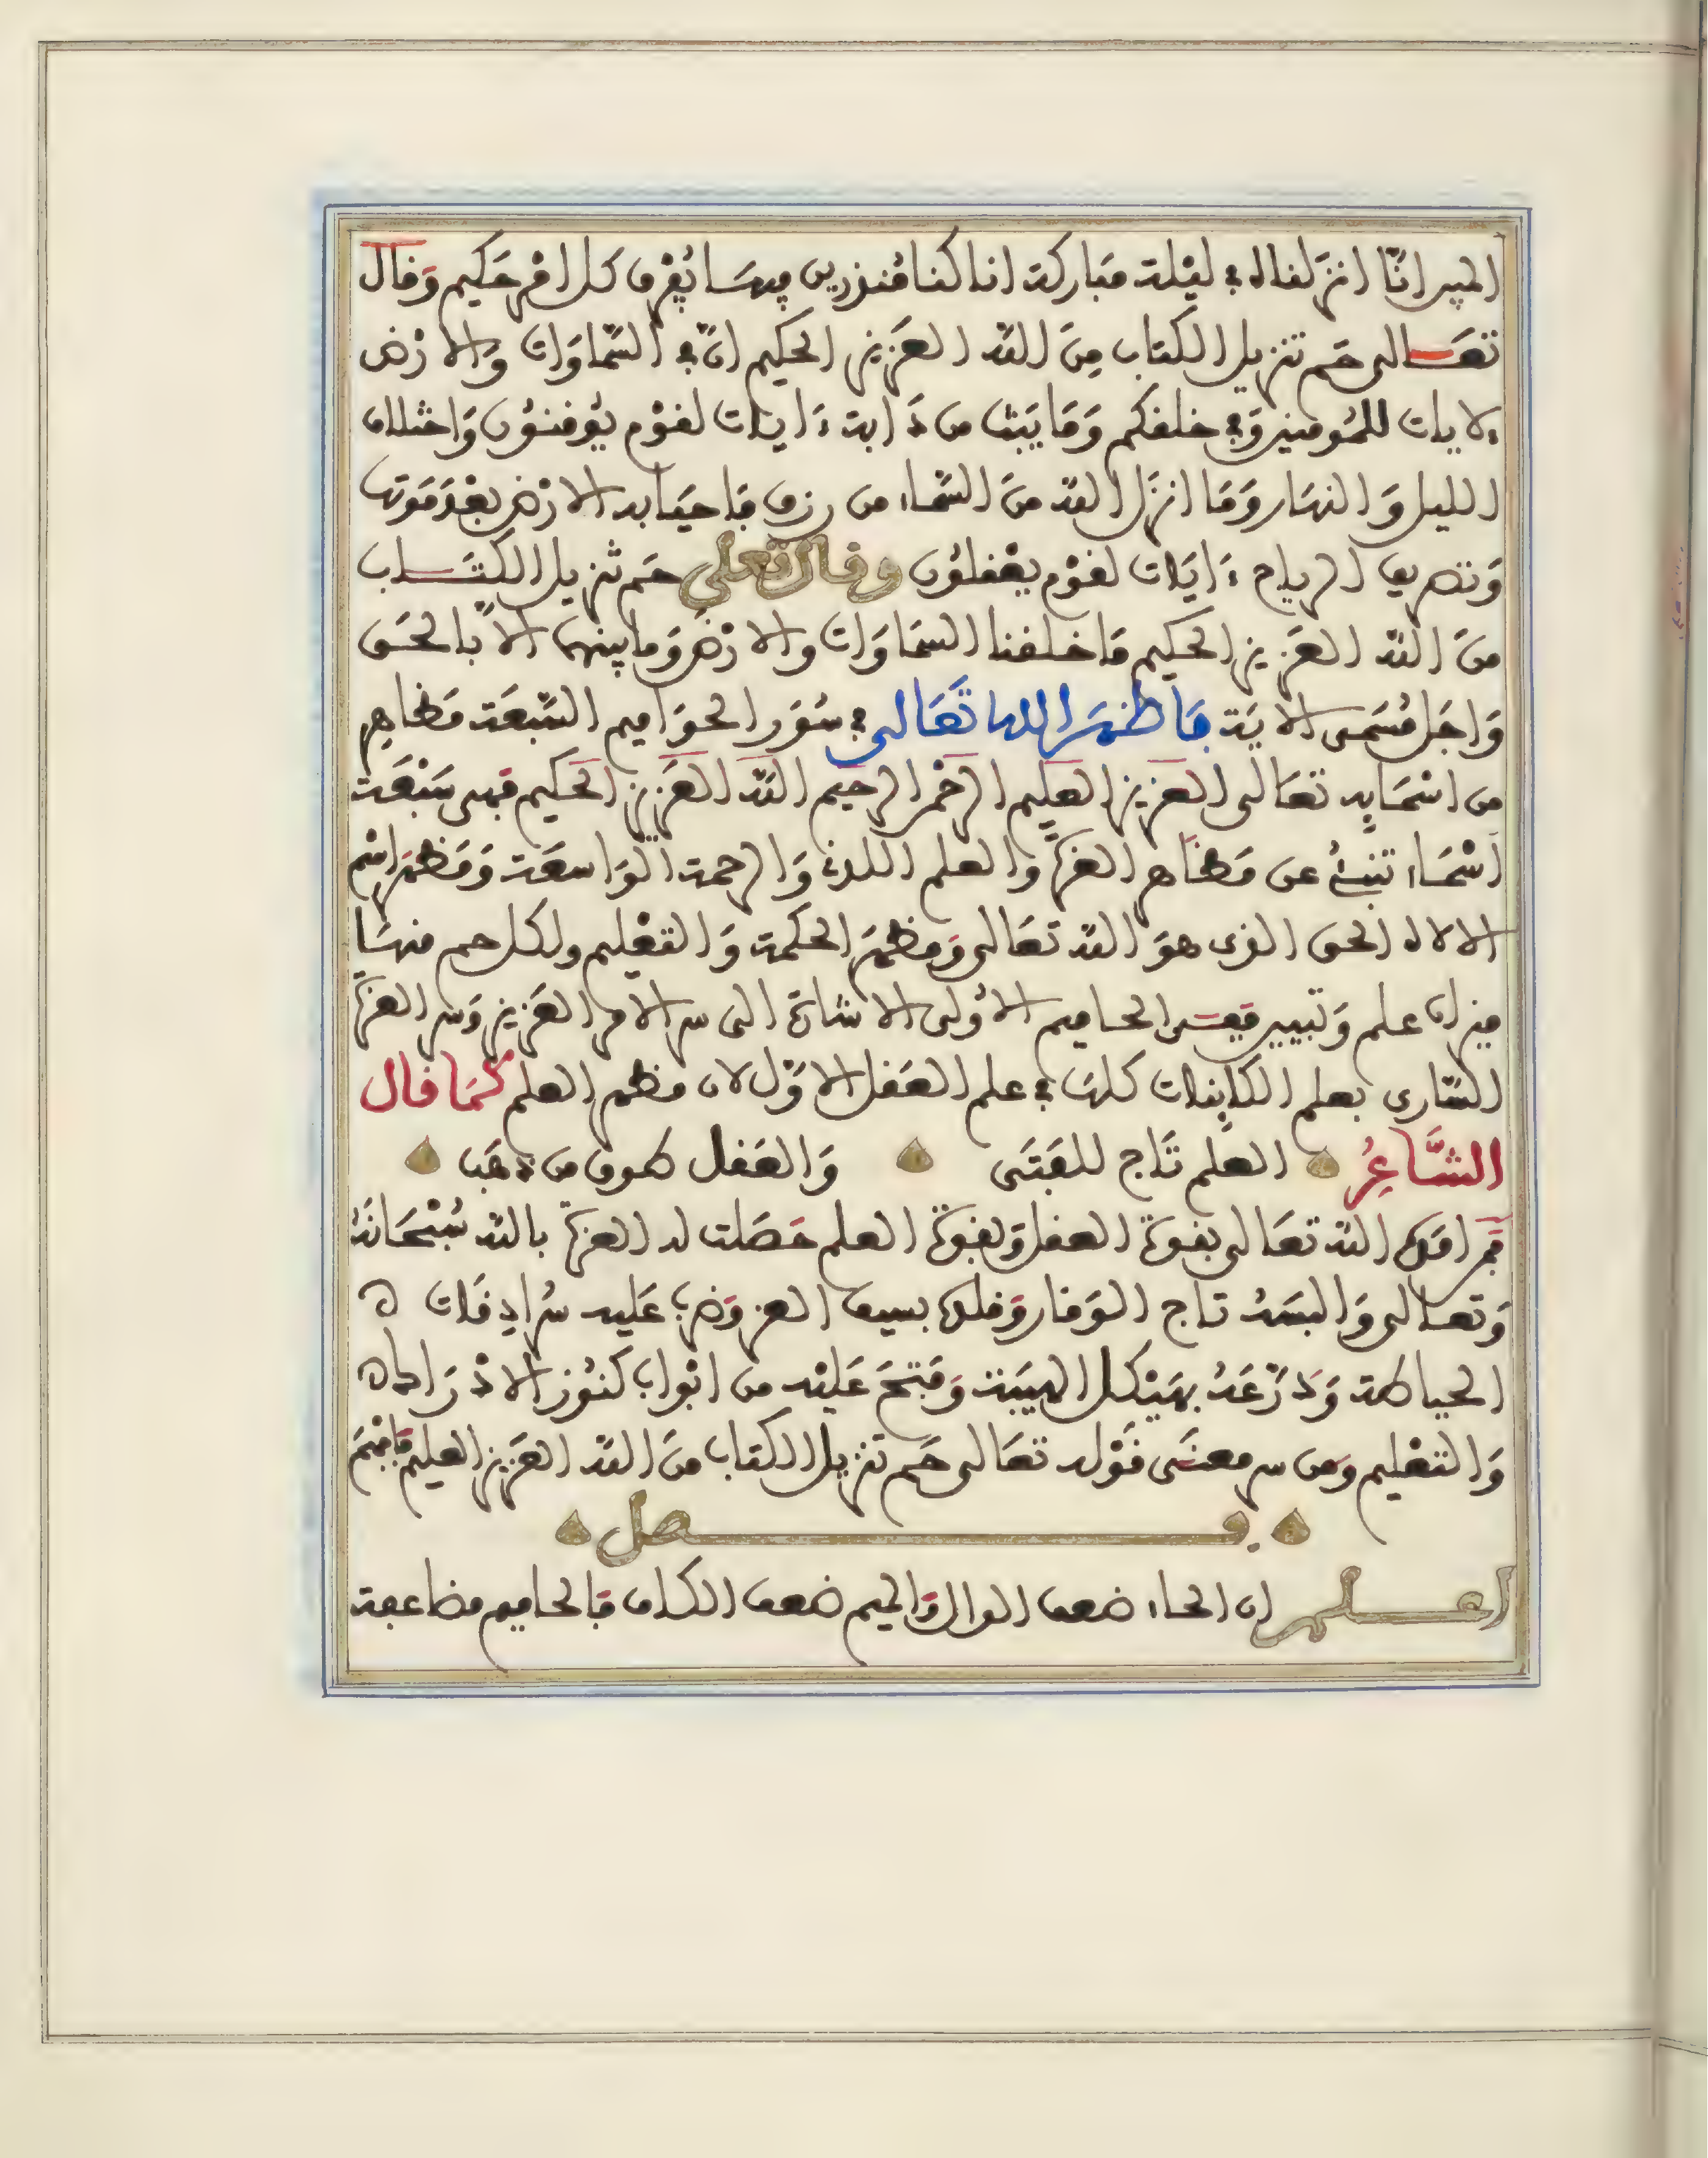 المبين انّا انزلناه في ليْلة مّباركة انا كنا مُنذرين فيهَا يُفْرق كل امْر حَكيم وَقال
تعَالى حَم تنزيل الكتاب مِنَ اللّه العَزيز الحكيم انّ في السّماوَات وَالارْض
لايات للمُومنين وَفي خلقكم وَمَا يَبُثّ من دَابة ءايات لقوْم يُوقنُون وَاختلاف
الليل وَالنهَار وَمَا انزَل اللّه منَ السّمَاء من رزق فَاحيَا به الارْض بعْدَ مَوتهَا
وَتصريف الرياح ءايَات لقوْم يعْقلُون وقال تعلى حَم تنزيل الكتَاب
منَ اللّه العَزيز الحكيم مَا خلقنا السمَاوَات والارْضَ وَما بينهما الاّ بالحَق
وَاجَل مُسَمى الايَة فاظهَر الله تعَالى في سُوَر الحوَاميم السّبعَة مَظاهر
من اسْمَايه تعَالى العَزيز العليم الرحْمن الرحيم اللّه العَزيز الحكيم فهي سَبْعَة
اسْمَاء تنبئُ عن مَظاهر العزة وَالعلم اللدني وَالرحمة الوَاسعَة وَمَظهَر اسْم
الالاه الحق الذي هوَ اللّه تعَالى وَمظهَر الحكمة وَالتعْليم ولكل حم منهَا
ميزان علم وَتبيين فَفي الحاميم الاُولى الاشارة الى سر الامر العَزيز وَسر العزة
السّاري بعلم الكاينات كلهَا في علم العَقل الاوّل لان مظهر العلم كمَا قال
الشّاعِرُ العلم تَاج للفَتَى وَالعَقل طوق من ذهَب
فمن امَده اللّه تعَالى بقوة العقل وَبقوة العلم حَصَلت له العزة باللّه سُبْحَانَهُ
وَتعالى وَالبسَهُ تاج الوَقار وَقلده بسيف العز وَضرب عَليه سُرادقات
الحياطة وَدَرّعَهُ بهَيْكل الهيبَة وَفَتحَ عَليْه من ابْواب كنُوز الادْرَاك
وَالتعْليم وَمن سر معنَى قوْله تعَالى حَم تنزيل الكتاب منَ اللّه العَزيز العليم فافهَم
فصل
اعلم ان الحاء ضعف الدال وَالميم ضعف الكاف فَالحاميم مضاعفة